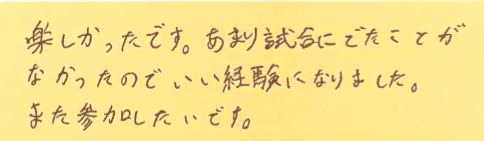 楽しかったです。あまり試合にでたことが
なかったのでいい経験になりました。
また参加したいです。